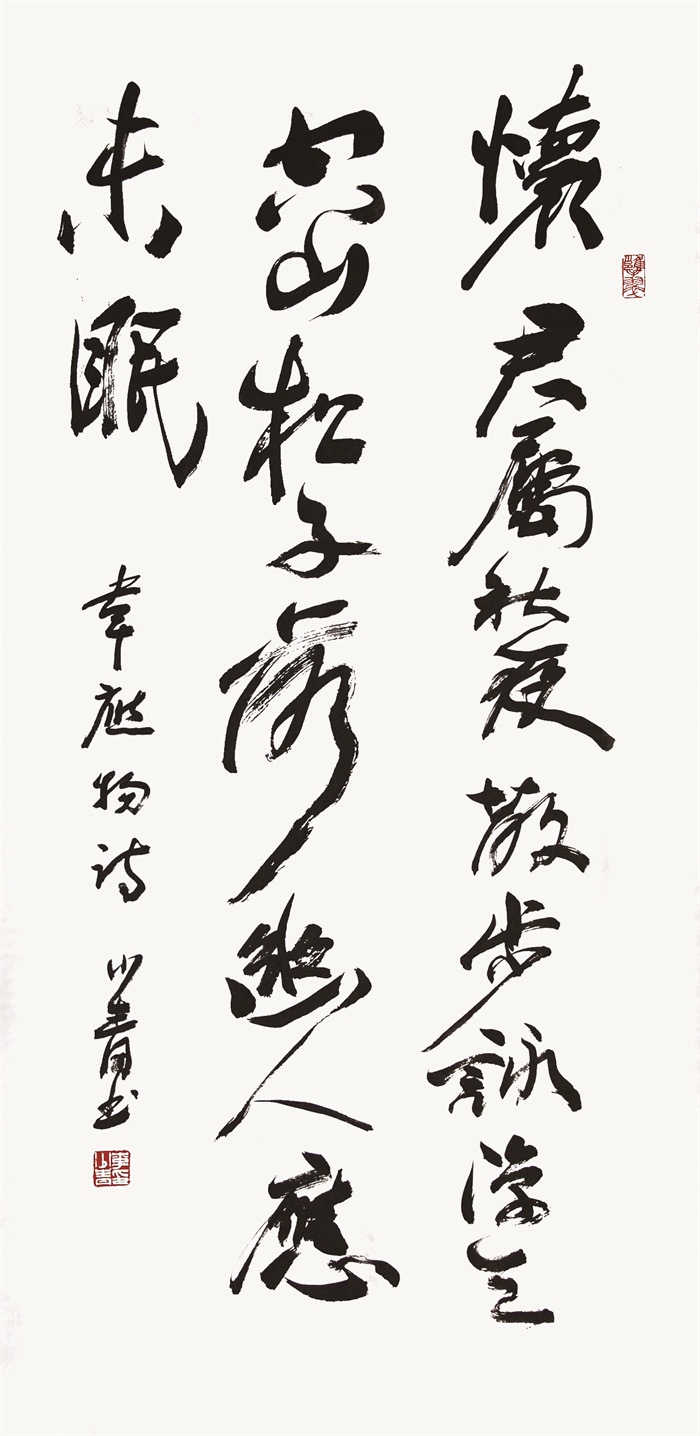 懷君屬秋夜散步詠涼天
空山松子落幽人應
未眠
韋應物詩 小青书